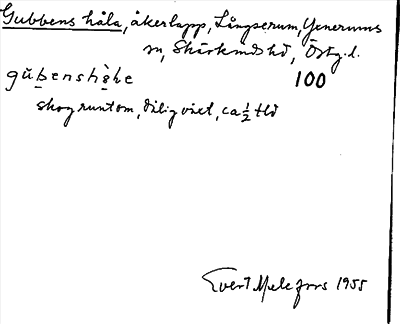 Gubbens håla, åkerlapp, Långserum, Yxnerums
sn, Skärkinds hd, Östg.l.
100
skog runtom, dålig växt, ca ½ tld
Evert Melefors 1955